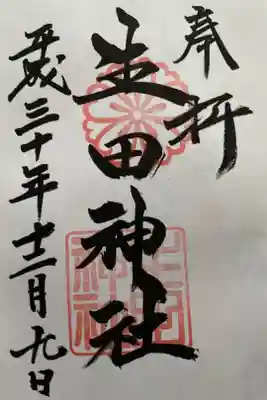 奉拝
生田神社
平成三十年十二月九日
生田神社